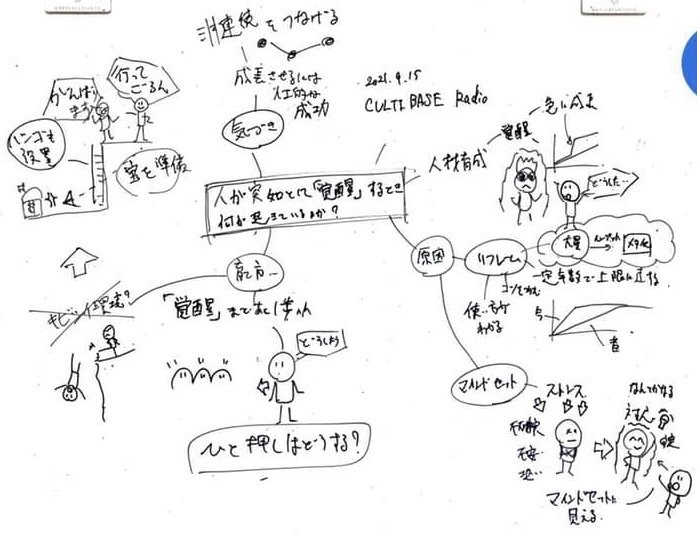 非連続をつなげる
成長させるには
圧倒的な
成功
気づき
2021.9.15
CULTIBASE Radio
行って
ごらん
がんばり
ます
ハシゴを
設置
宝を準備
人が突如として「覚醒」するとき
何が起きているか?
人材育成
覚醒
急に成長
どうした…
原因
リフレーム
大量
メタ化
一定年数で上限に達する
使い方が
わかる
今
昔
育て方
「覚醒」まであと1歩の人
どうしよう
ひと押しはどうする?
マインドセット
ストレス
不安
恐い
なんてかなる
マインドセットに
見える